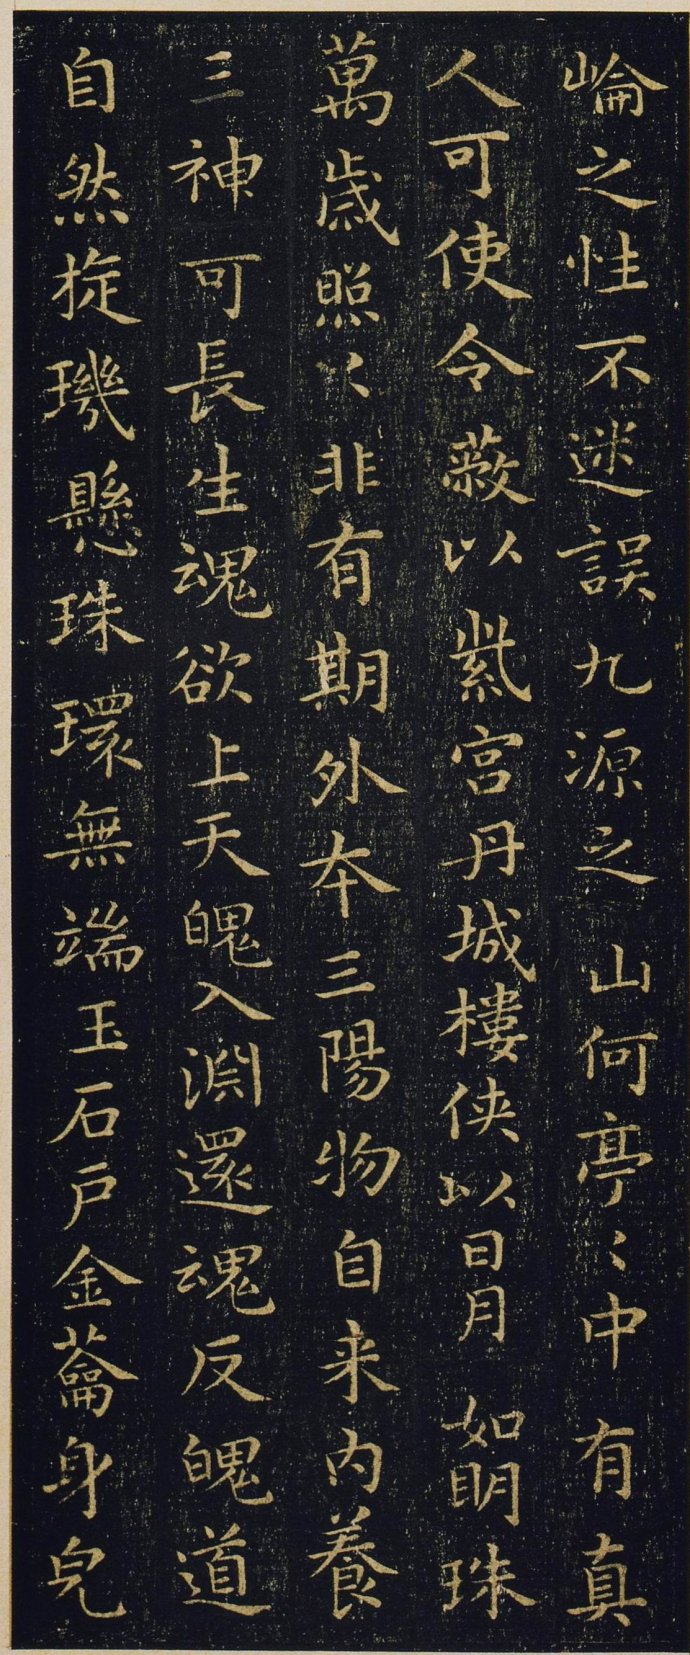 崘之性不迷誤九源之山何亭〻中有真
人可使令蔽以紫宮丹城樓侠以日月如明珠
萬歲照〻非有期外夲三陽物自来內養
三神可長生魂欲上天魄入淵還魂反魄道
自然㨁璣懸珠環無端玉石戶金蘥身皃